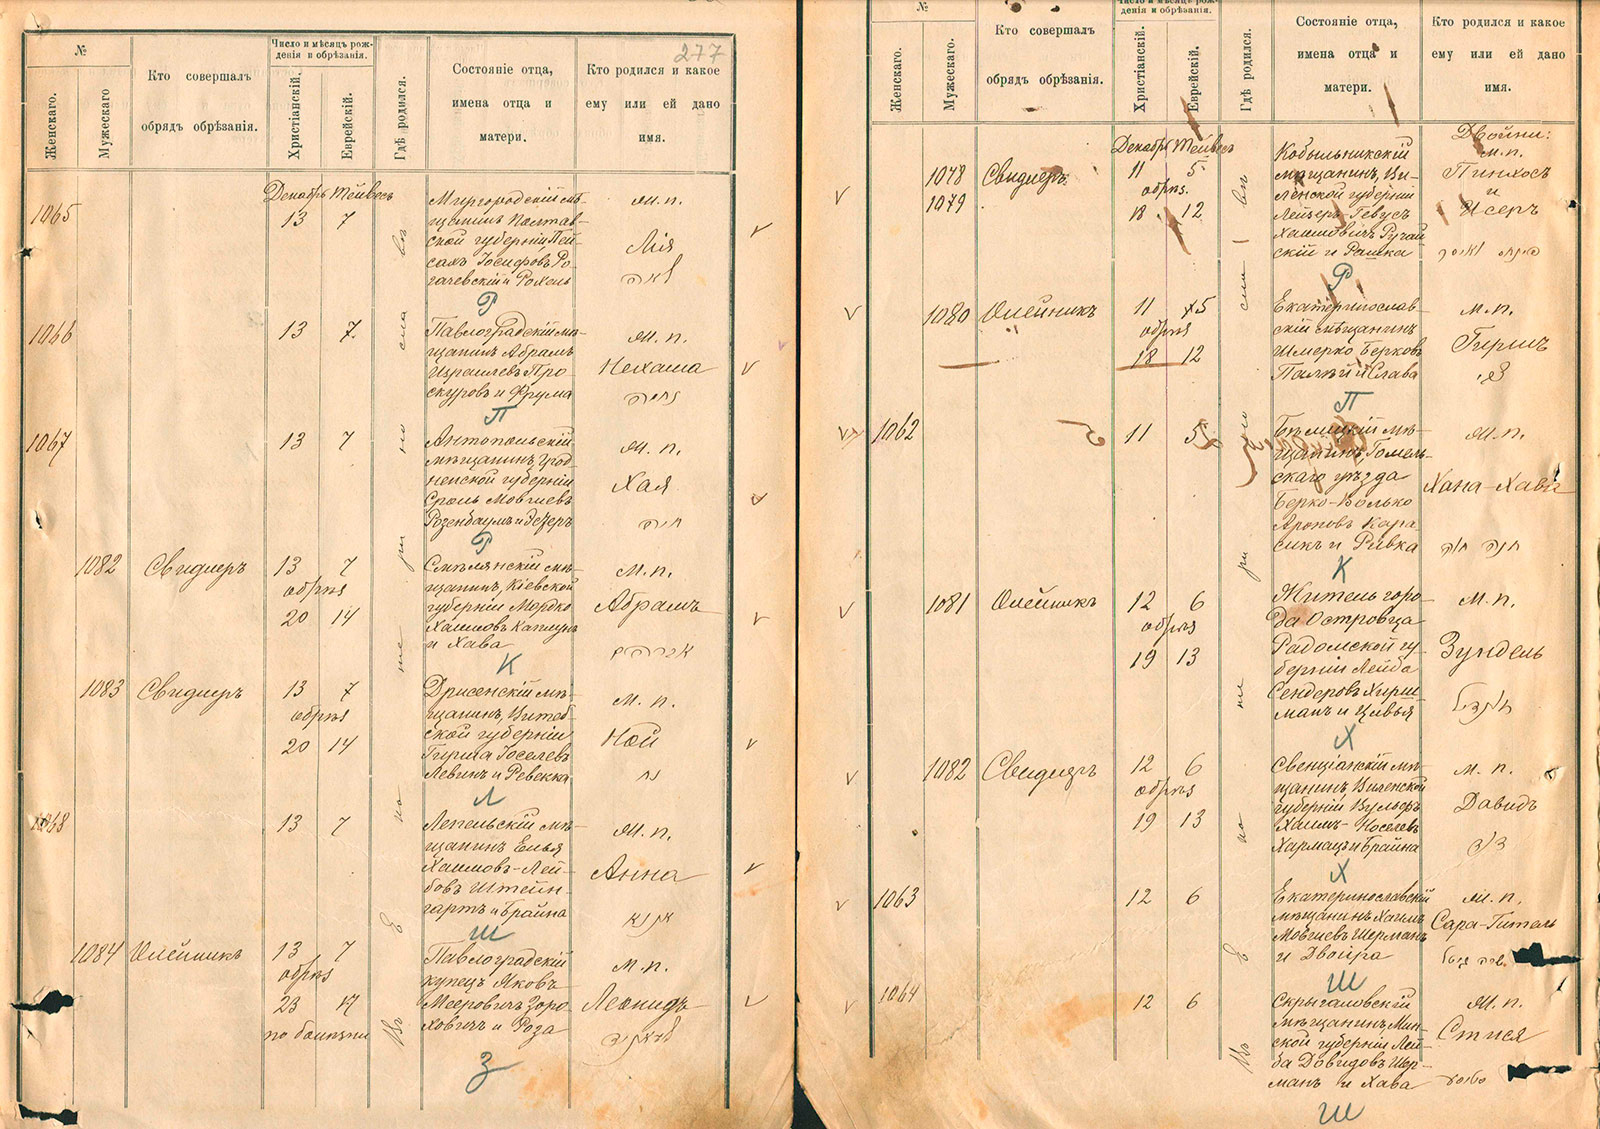 277
№
Женскаго.
Мужескаго
Кто совершалъ
обрядъ обрѣзанія.
Число и мѣсяцъ рож-
денія и обрѣзанія.
Христіанскій.
Еврейскій.
Гдѣ родился.
Состояніе отца,
имена отца и
матери.
Кто родился и какое
ему или ей дано
имя.
Въ Екатеринославѣ
Декабрь Тейвесъ
1065
13 7
Миргородскій мѣ-
щанинъ Полтав-
ской губерніи Пей-
сахъ Іосифовъ Ро-
гачевскій и Рохель
ж. п.
Лія
לאה
Р
1066
13 7
Павлоградскій мѣ-
щанинъ Абрамъ
Израилевъ Про-
скуровъ и Фрума
ж. п.
Нехама
נחמה
П
1067
13 7
Антопольскій
мѣщанинъ Грод-
ненской губерніи
Сроль Мовшевъ
Розенбаумъ и Эстеръ
ж. п.
Хая
חיה
Р
1082
Свидлеръ
13 7
обрѣз
20 14
Смѣлянскій мѣ-
щанинъ, Кіевской
губерніи Мордко
Хаимовъ Каплунъ
и Хава
м. п.
Абрамъ
אברהם
К
1083
Свидлеръ
13 7
обрѣз
20 14
Дрисенскій мѣ-
щанинъ, Витеб-
ской губерніи
Гирша Іоселевъ
Левинъ и Ревекка
м. п.
Ной
נח
Л
1068
13 7
Лепельскій мѣ-
щанинъ Елья
Хаимовъ-Лей-
бовъ Штейн-
гартъ и Брайна
ж. п.
Анна
Ш
1084
Олейникъ
13 7
обрѣз
23 17
по болѣзни
Павлоградскій
купецъ Яковъ
Мееровичъ Зоро-
ховичъ и Роза
м. п.
Леонидъ
З
№
Женскаго.
Мужескаго.
Кто совершалъ
обрядъ обрѣзанія.
Число и мѣсяцъ рож-
денія и обрѣзанія.
Христіанскій.
Еврейскій.
Гдѣ родился.
Состояніе отца,
имена отца и
матери.
Кто родился и какое
ему или ей дано
имя.
Въ Екатеринославѣ
Декабрь Тейвесъ
1078
1079
Свидлеръ
11 5
обрѣз.
18 12
Кобыльникскій
мѣщанинъ, Ви-
ленской губерніи
Лейзеръ-Гевусъ
Хаимовичъ Ручай-
скій и Рашка
Двойни:
м. п.
Пинхосъ
и
Исеръ
Р
1080
Олейникъ
11 5
обрѣз
18 12
Екатеринослав-
скій мѣщанинъ
Шмерко Берковъ
Палѣй и Слава
м. п.
Гиршъ
צבי
П
1062
11 5
Бѣлицкій мѣ-
щанинъ Гомель-
скаго уѣзда
Берко-Волько
Ароновъ Кара-
сикъ и Ривка
ж. п.
Хана-Хава
חנה חוה
К
1081
Олейникъ
12 6
обрѣз
19 13
Житель горо-
да Островца
Радомской гу-
берніи Лейба
Сендеровъ Хирш-
манъ и Цивья
м. п.
Зундель
זונדיל
Х
1082
Свидлеръ
12 6
обрѣз
19 13
Свенцянскій мѣ-
щанинъ, Виленской
губерніи Вульфъ
Хаимъ-Іоселевъ
Хармацъ и Брайна
м. п.
Давидъ
דוד
Х
1063
12 6
Екатеринославскій
мѣщанинъ Хаимъ
Мовшевъ Шерманъ
и Двойра
ж. п.
Сара-Гитель
שרה גיטל
Ш
1064
12 6
Скрыгаловскій
мѣщанинъ Мин-
ской губерніи Лей-
ба Довидовъ Шер-
манъ и Хава
ж. п.
Стися
Ш